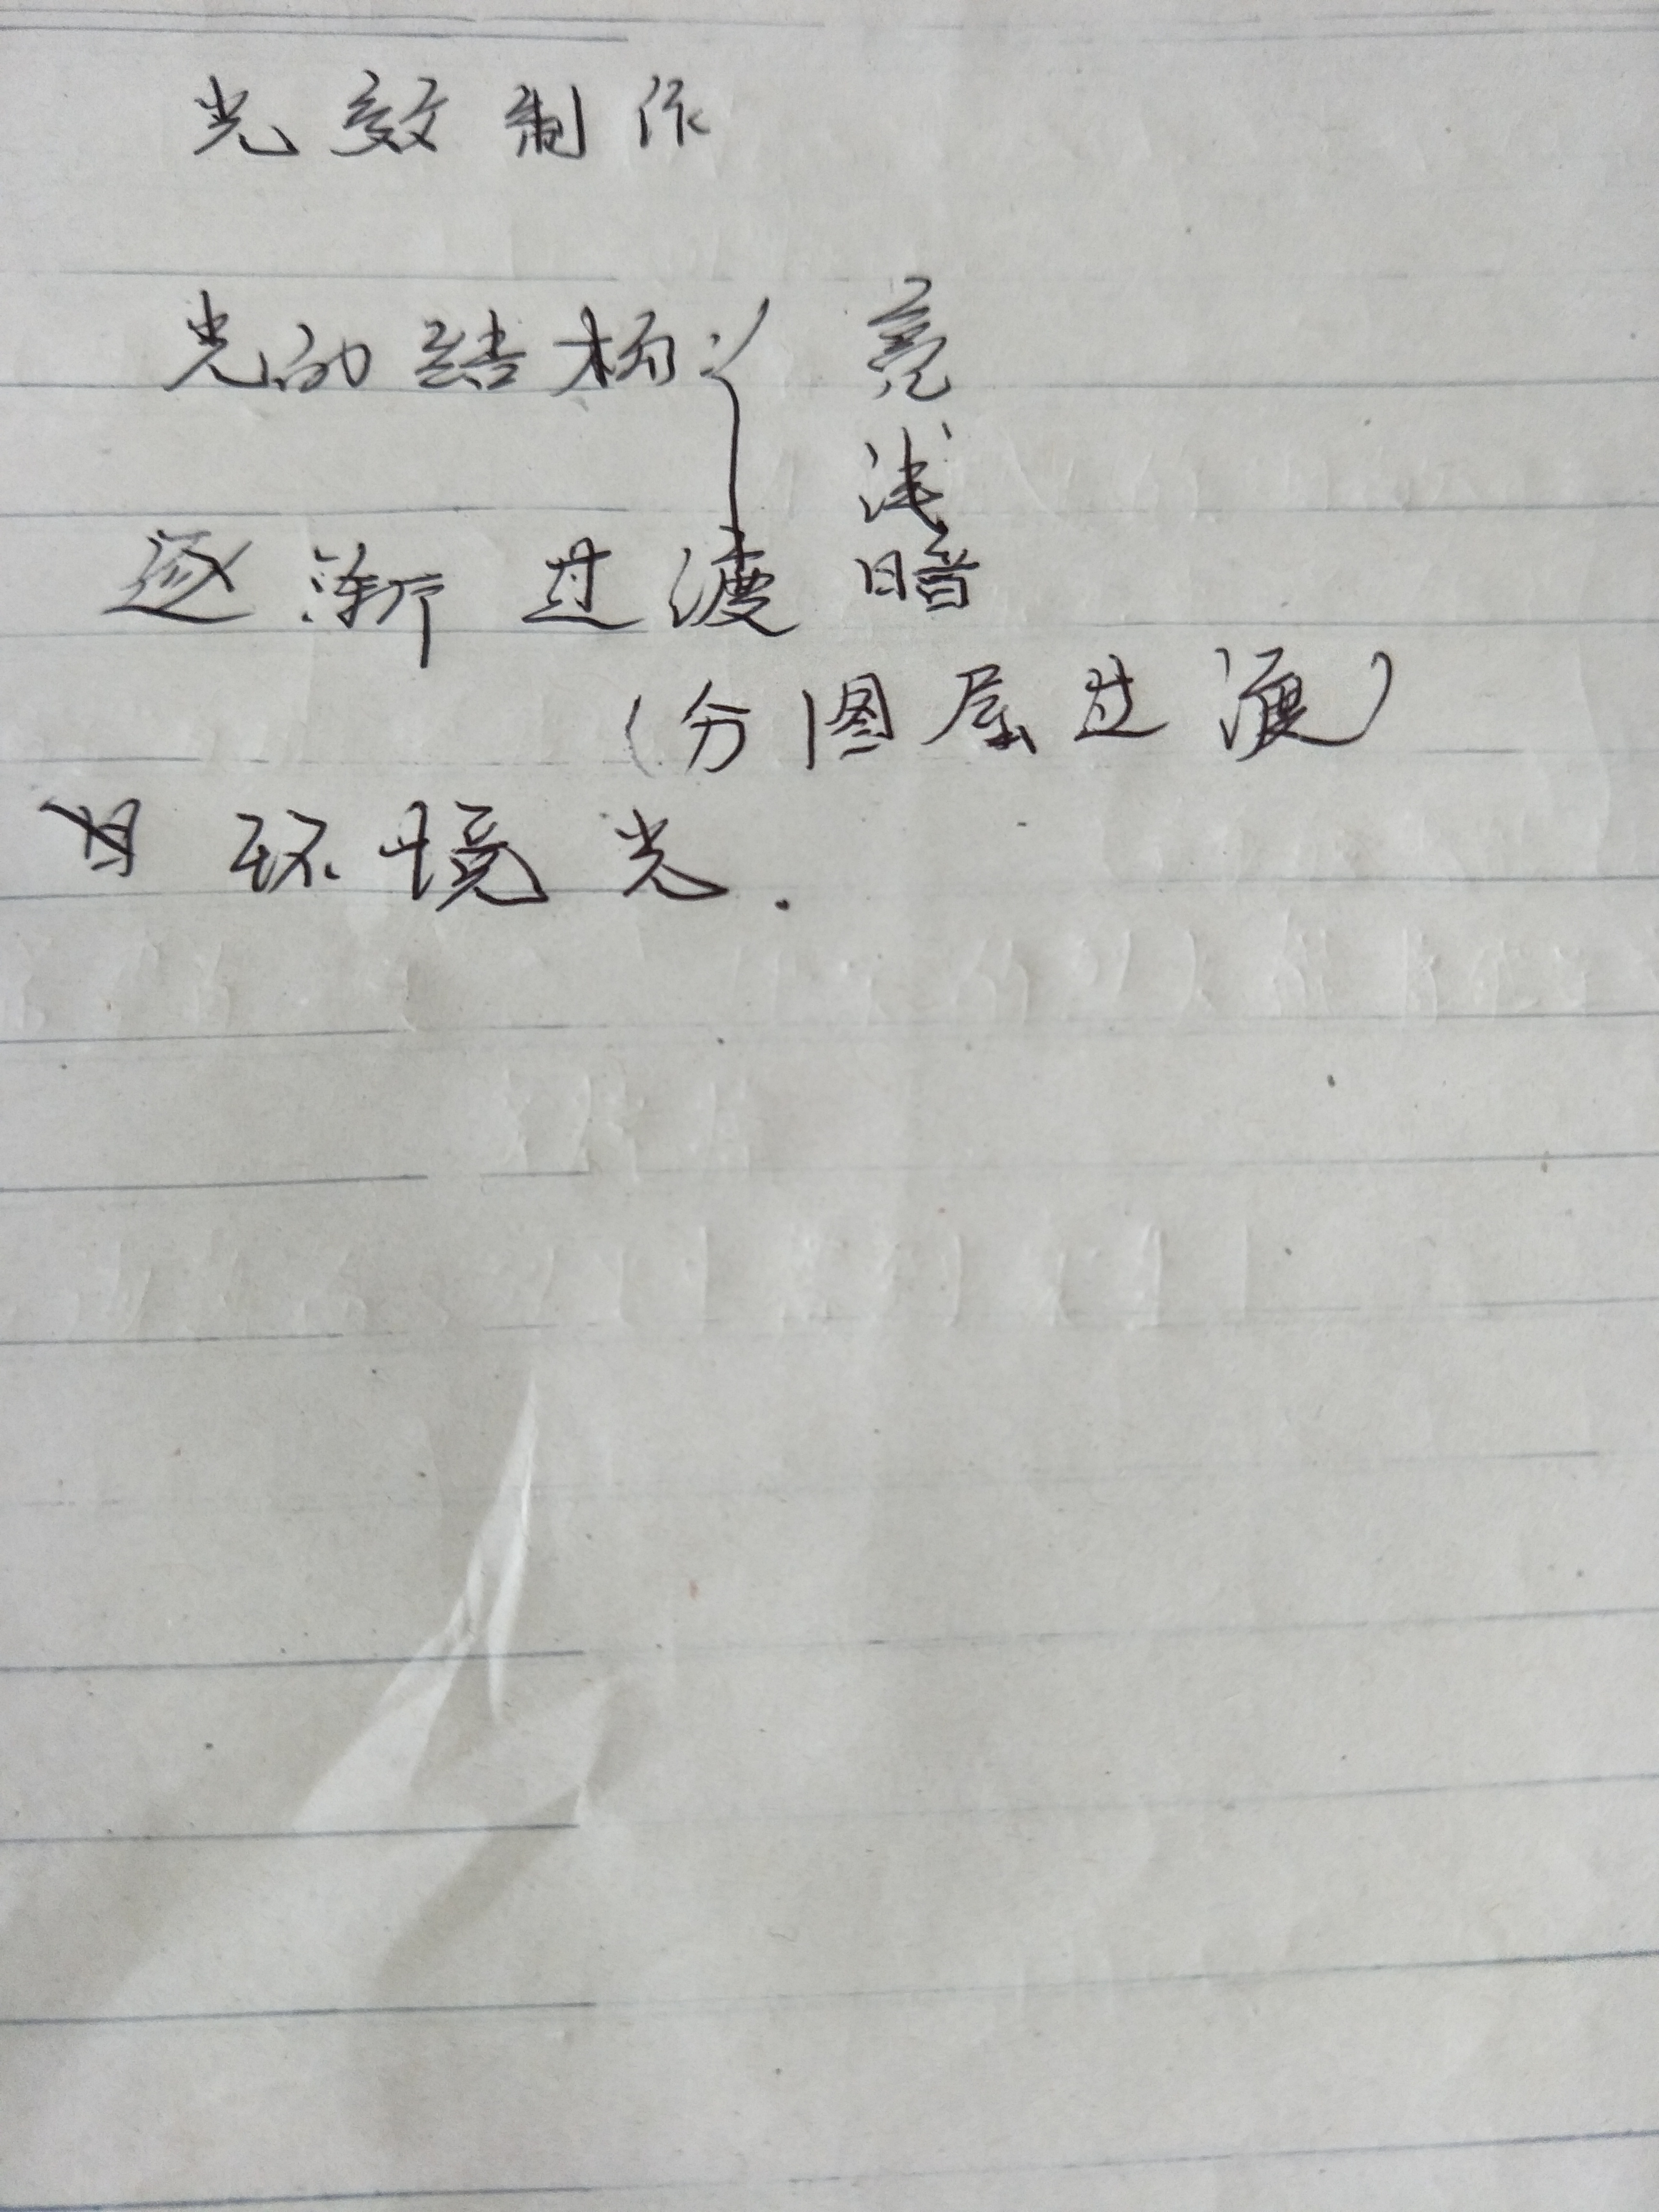 光效制作
光的结构:{亮
浅
暗
逐渐过渡
(分图层过渡)
环境光.